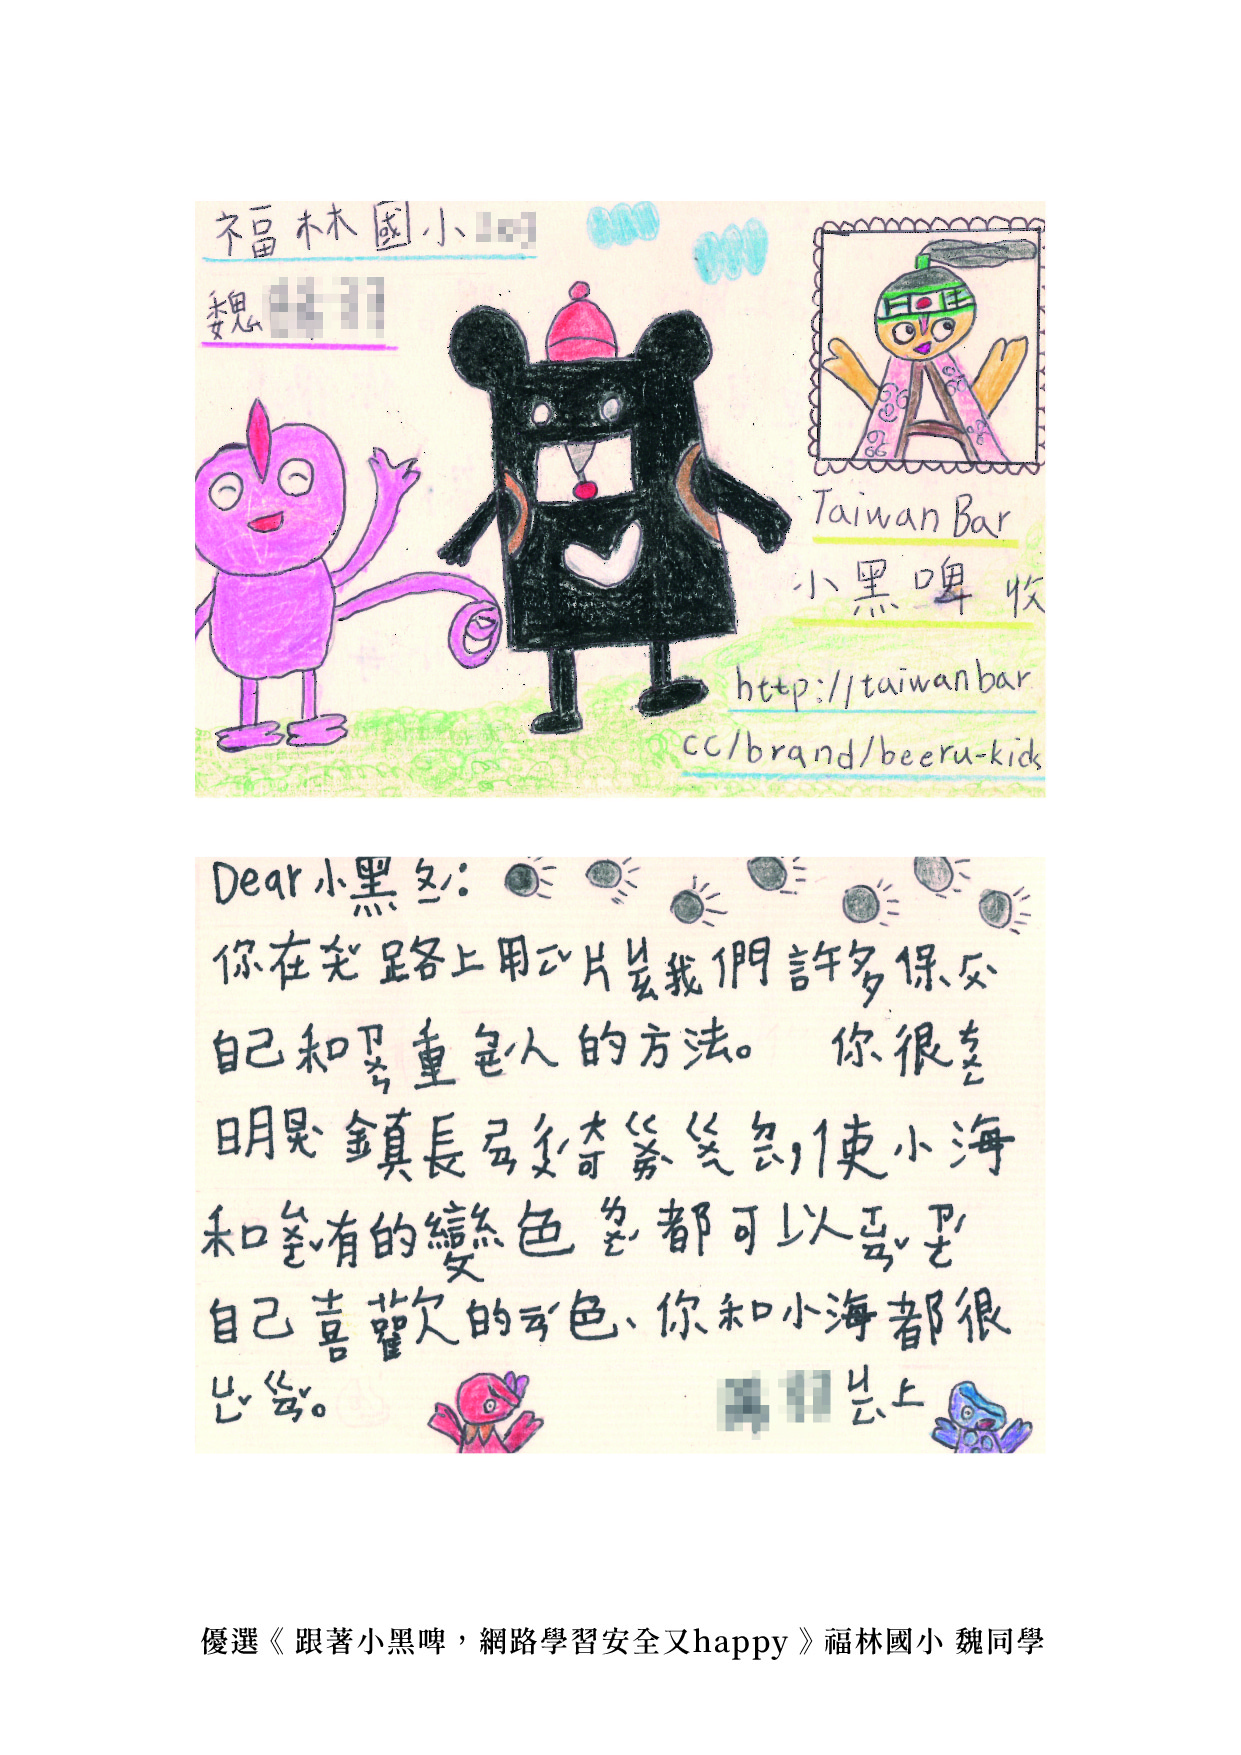 福林國小
魏
Taiwan Bar
小黑啤 收
http://taiwanbar
cc/brand/beeru-kids
Dear 小黑ㄆㄧˊ:
你在ㄨㄤˇ路上用ㄧㄥˇ片ㄐㄧㄠ我們許多保ㄏㄨˋ
自己和ㄗㄨㄣ重ㄅㄧㄝˊ人的方法。 你很ㄘㄨㄥ
明 鎮長 奇ㄍㄨㄞˋ ,使小海
和ㄙㄨㄛˇ有的變色ㄌㄨㄥˊ都可以ㄒㄩㄢˇㄗㄜˊ
自己喜歡的ㄧㄢˊ色、你和小海都很
ㄩㄥˇㄍㄢˇ。
ㄐㄧㄥˋ上
優選《 跟著小黑啤,網路學習安全又happy 》福林國小 魏同學